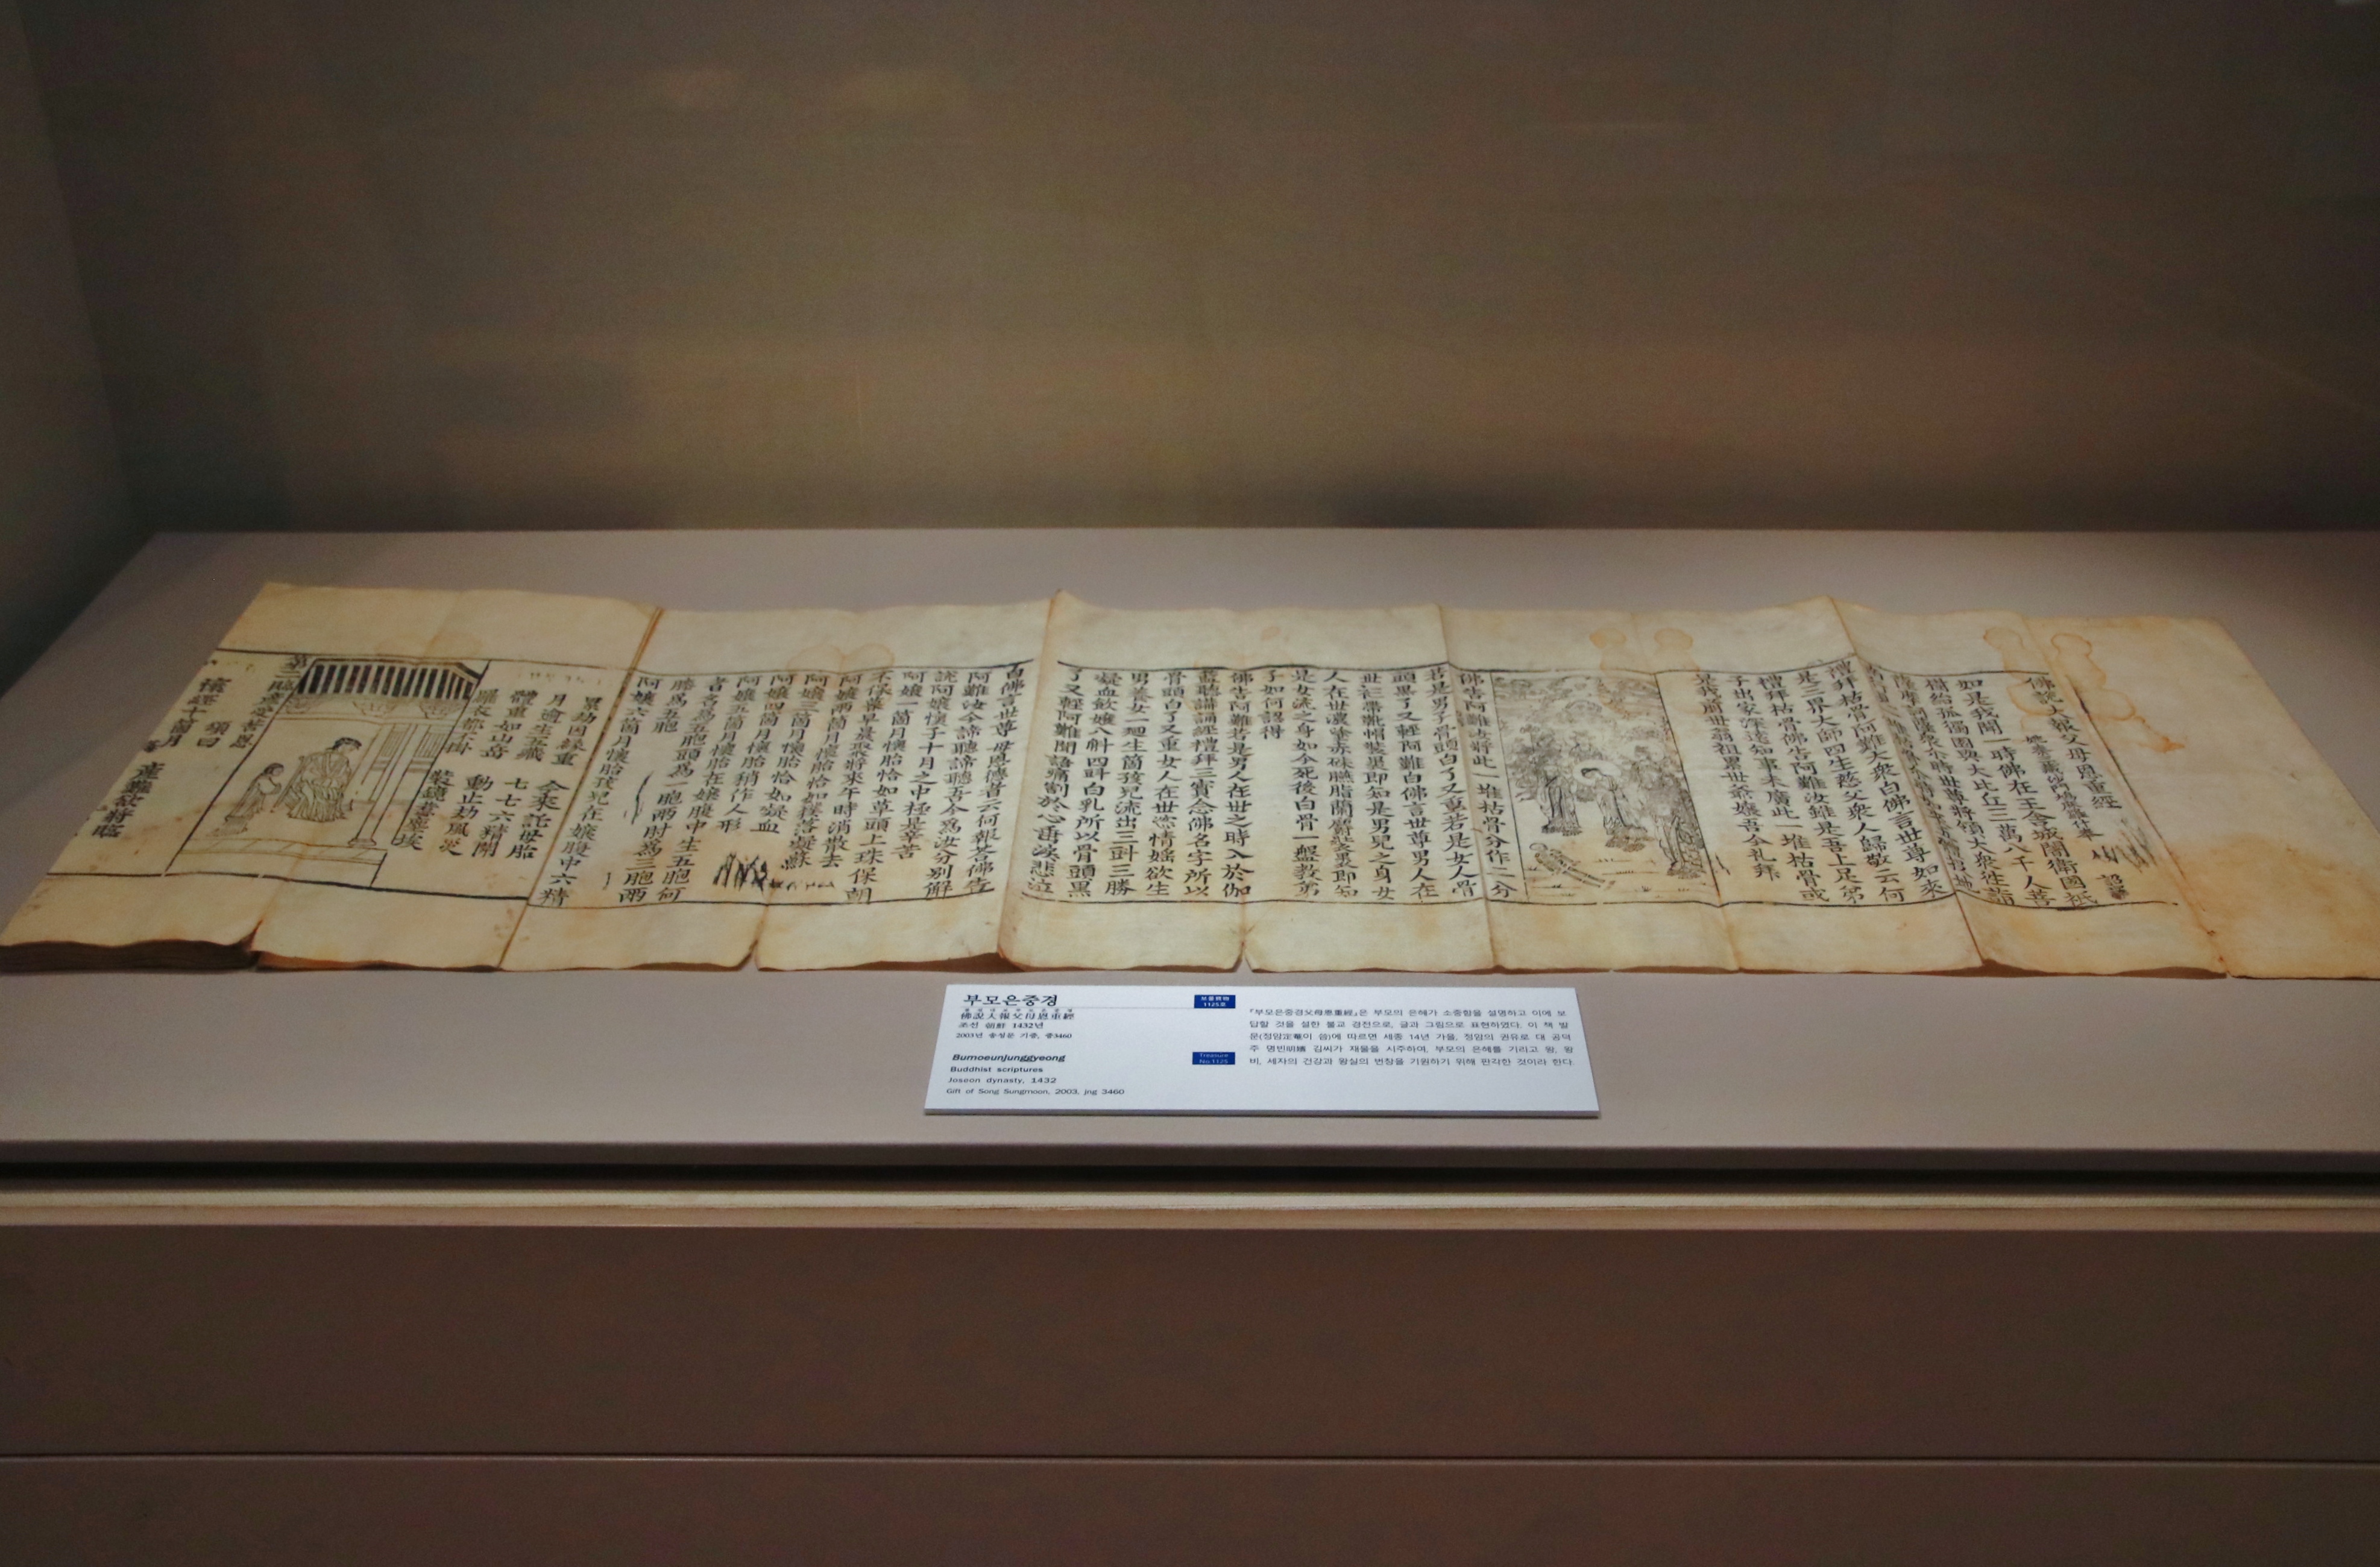 佛說大報父母恩重經
如是我聞一時佛在王舍城闍衛國祇
樹給孤獨園與大比丘三萬八千人菩
禮拜枯骨阿難大衆白佛言世尊如來
是三界大師四生慈父衆人歸敬云何
禮拜枯骨佛告阿難汝雖是吾上足弟
子出家深遠知事未廣此一堆枯骨或
是我前世翁祖累世爺孃吾今礼拜
佛告阿難汝將此一堆枯骨分作二分
若是男子骨頭白了又重若是女人骨
頭黑了又輕阿難白佛言世尊男人在
世衫帶靴帽裝裹即知是男兒之身女
人在世濃塗赤硃臙脂蘭麝裝裹即知
是女流之身如今死後白骨一盤教弟
子如何認得
佛告阿難若是男人在世之時入於伽
藍聽講誦經禮拜三寶念佛名字所以
骨頭白了又重女人在世恣情婬欲生
男養女一迴生箇孩兒流出三㪷三勝
凝血飮孃八斛四㪷白乳所以骨頭黑
了又輕阿難聞語痛割於心垂淚悲泣
白佛言世尊母恩德者云何報荅佛告
阿難汝今諦聽諦聽吾今爲汝分別解
說阿孃懷子十月之中極是辛苦
阿孃一箇月懷胎恰如草頭上珠保朝
不保暮早晨聚將來午時消散去
阿孃兩箇月懷胎恰如撲落凝蘇
阿孃三箇月懷胎恰如凝血
阿孃四箇月懷胎稍作人形
阿孃五箇月懷胎在孃腹中生五胞何
者名爲五胞頭爲一胞兩肘爲三胞兩
膝爲五胞
阿孃六箇月懷胎孩兒在孃腹中六精
累劫因緣重 今來託母胎
月逾生五藏 七七六精開
體重如山岳 動止劫風災
羅衣都不掛 裝鏡惹塵埃
第二臨產受苦恩
頌曰
懷經十箇月 產難欲將臨
부모은중경
佛說大報父母恩重經
조선 朝鮮 1432년
2003년 송성문 기증, 증3460
Bumoeunjunggyeong
Buddhist scriptures
Joseon dynasty, 1432
Gift of Song Sungmoon, 2003, jng 3460
보물 寶物
1125호
Treasure
No.1125
『부모은중경父母恩重經』은 부모의 은혜가 소중함을 설명하고 이에 보
답할 것을 설한 불교 경전으로, 글과 그림으로 표현하였다. 이 책 발
문(정암定菴이 씀)에 따르면 세종 14년 가을, 정암의 권유로 대 공덕
주 명빈明嬪 김씨가 재물을 시주하여, 부모의 은혜를 기리고 왕, 왕
비, 세자의 건강과 왕실의 번창을 기원하기 위해 판각한 것이라 한다.